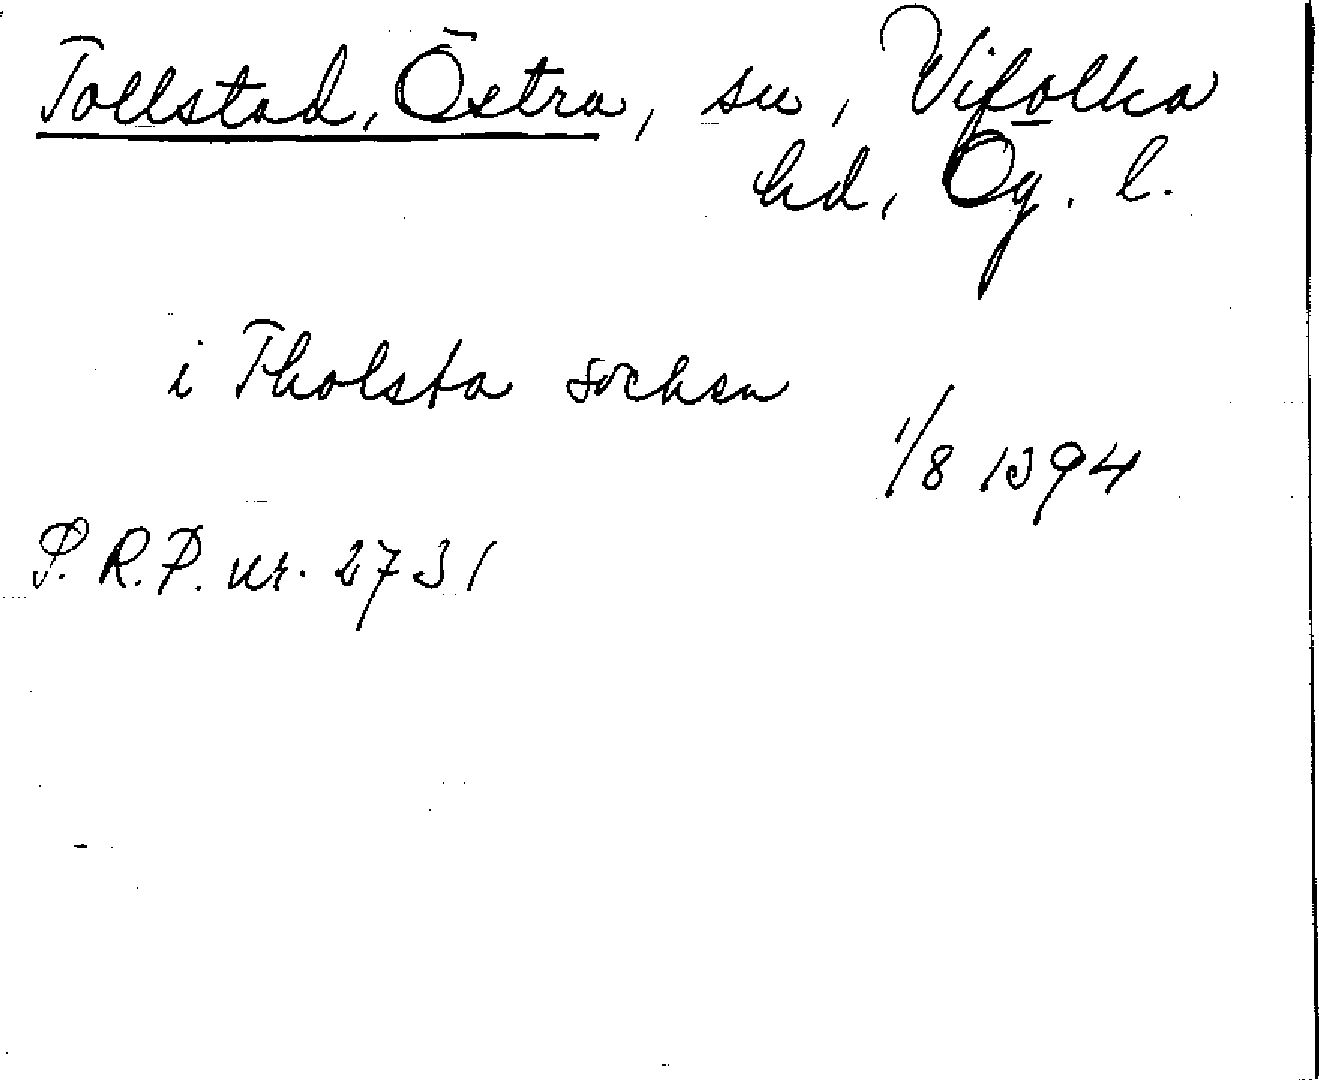 Tollstad, Östra, sn, Vifolka
hd, Ög. l.
i Tholsta sochen
1/8 1394
S. R. P. nr. 2731